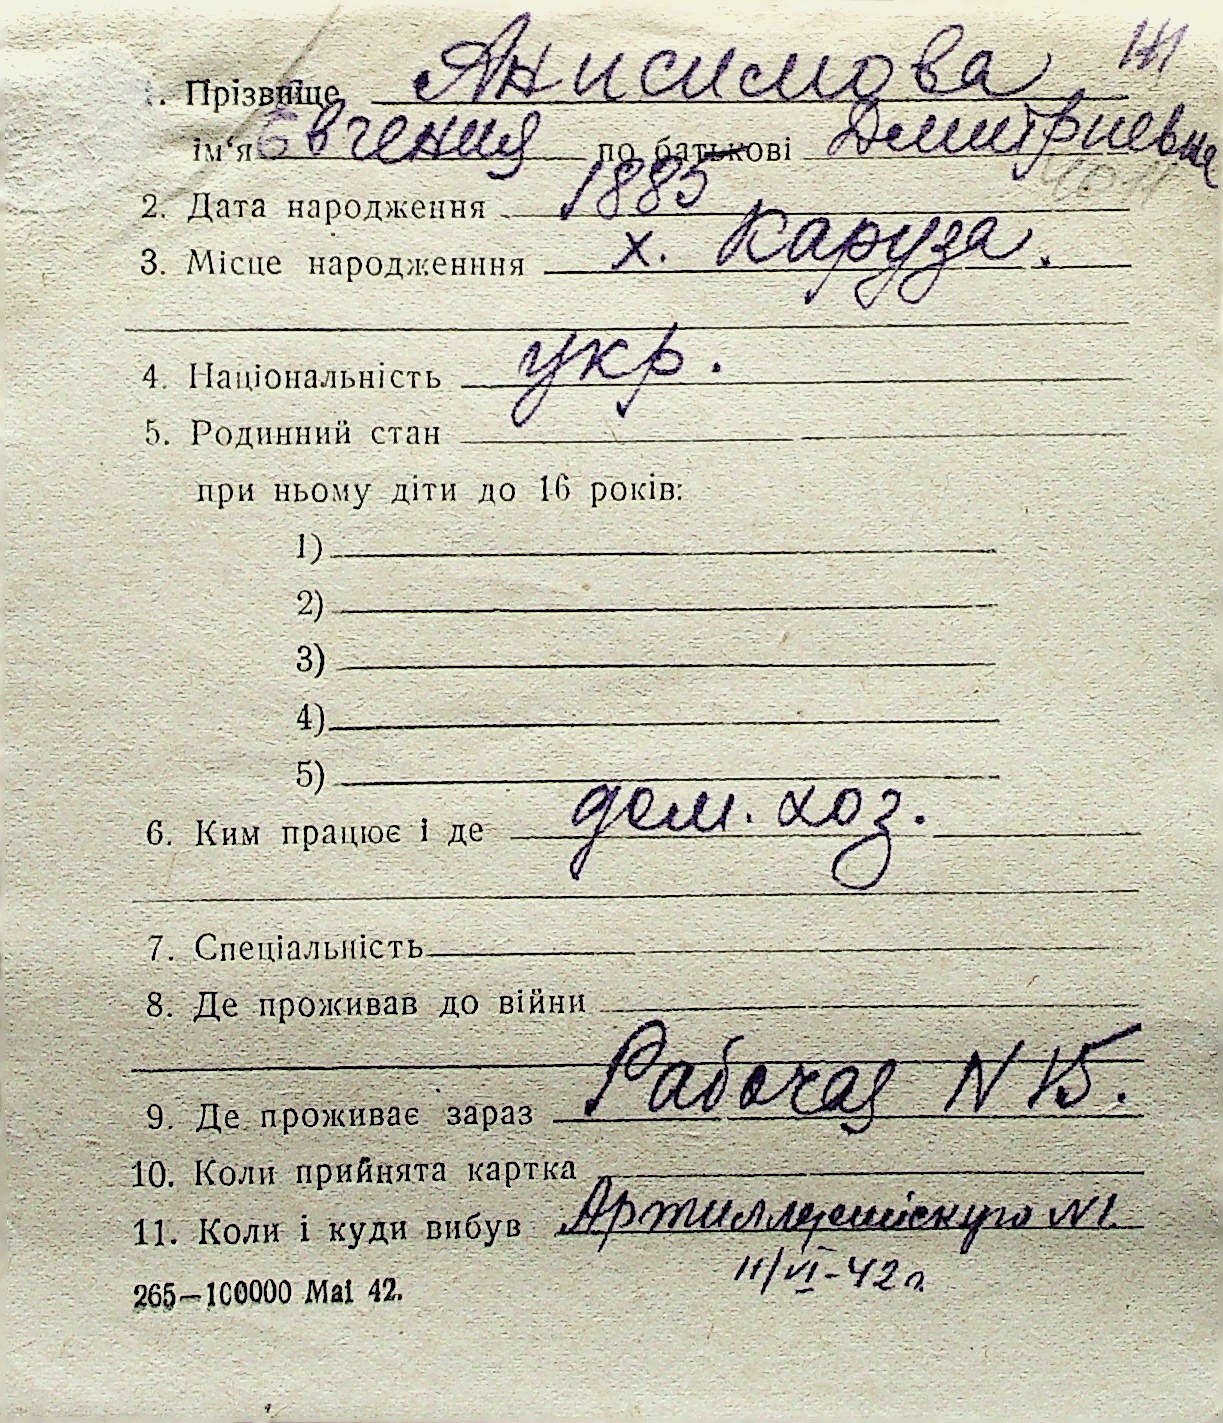 1. Прізвище Анисимова Ж
ім'я Евгения по батькові Дмитриевна
2. Дата народження 1885
3. Місце народженння х. Каруза.
4. Національність укр.
5. Родинний стан
при ньому діти до 16 років:
1)
2)
3)
4)
5)
6. Ким працює і де дом. хоз.
7. Спеціальність
8. Де проживав до війни
9. Де проживає зараз Рабочая N 15.
10. Коли прийнята картка
11. Коли і куди вибув N1
11/VI-42 г.
265—100000 Mai 42.